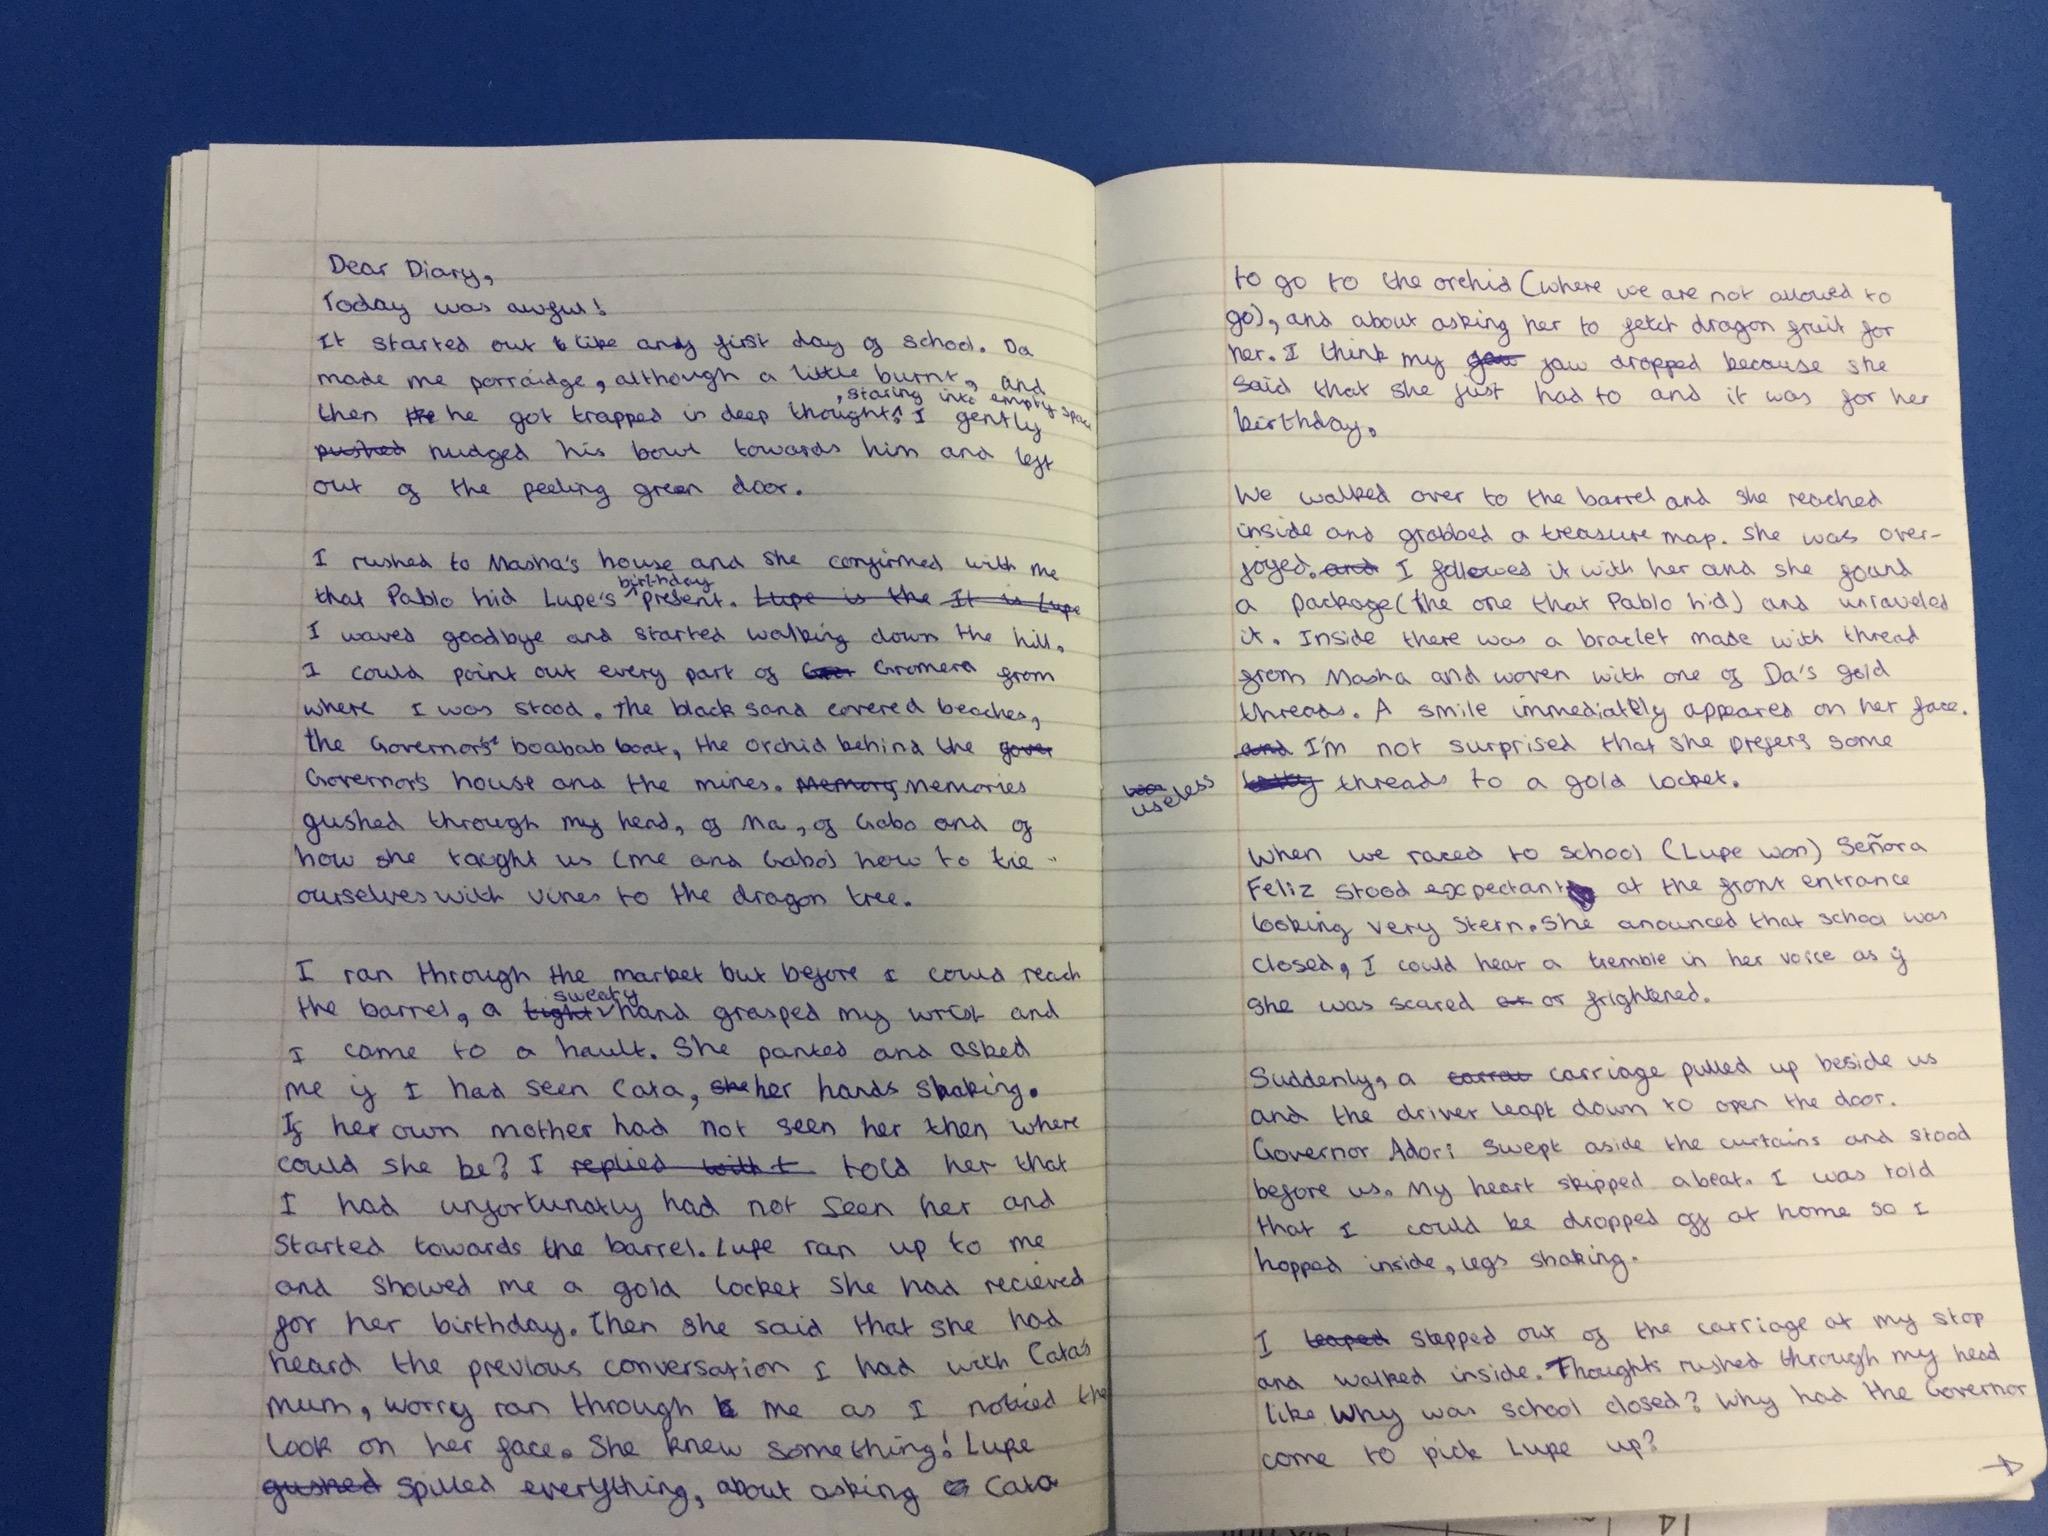 Dear Diary,
Today was awful!
It started out like any first day of school. Da
made me porraidge, although a little burnt, and
then he got trapped in deep thought, staring into empty space. I gently
pushed nudged his bowl towards him and left
out of the peeling green door.
I rushed to Masha's house and she confirmed with me
that Pablo hid Lupe's birthday present. Lupe is the It is Lupe
I waved goodbye and started walking down the hill.
I could point out every part of Gromera from
where I was stood. The black sand covered beaches,
the Governor's boabab boat, the orchid behind the gover
Governor's house and the mines. Memory Memories
gushed through my head, of Ma, of Gabo and of
how she taught us (me and Gabo) how to tie
ourselves with vines to the dragon tree.
I ran through the market but before I could reach
the barrel, a tight sweaty hand grasped my wrist and
I came to a hault. She panted and asked
me if I had seen Cata, she her hands shaking.
If her own mother had not seen her then where
could she be? I replied with t told her that
I had unfortunatly had not seen her and
started towards the barrel. Lupe ran up to me
and showed me a gold locket she had recieved
for her birthday. Then she said that she had
heard the previous conversation I had with Cata's
mum, worry ran through me as I noticed the
look on her face. She knew something! Lupe
gushed spilled everything, about asking Cata
to go to the orchid (where we are not allowed to
go), and about asking her to fetch dragon fruit for
her. I think my jaw dropped because she
said that she just had to and it was for her
birthday.
We walked over to the barrel and she reached
inside and grabbed a treasure map. She was over-
joyed. and I followed it with her and she found
a package (the one that Pablo hid) and unraveled
it. Inside there was a braclet made with thread
from Masha and woven with one of Da's gold
threads. A smile immediately appeared on her face.
and I'm not surprised that she prefers some
useless threads to a gold locket.
When we raced to school (Lupe won) Señora
Feliz stood expectant at the front entrance
looking very stern. She anounced that school was
closed, I could hear a tremble in her voice as if
she was scared or or frightened.
Suddenly, a carriage pulled up beside us
and the driver leapt down to open the door.
Governor Adori swept aside the curtains and stood
before us. My heart skipped a beat. I was told
that I could be dropped off at home so I
hopped inside, legs shaking.
I leaped stepped out of the carriage at my stop
and walked inside. Thoughts rushed through my head
like Why was school closed? Why had the Governor
come to pick Lupe up?